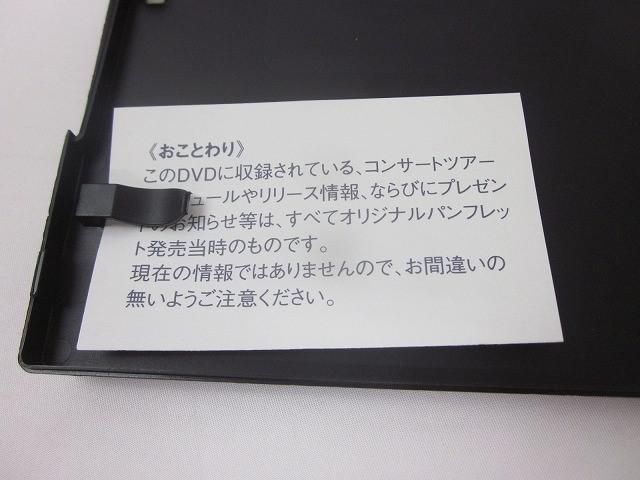 《おことわり》
このDVDに収録されている、コンサートツアー
ュールやリリース情報、ならびにプレゼン
のお知らせ等は、すべてオリジナルパンフレッ
ト発売当時のものです。
現在の情報ではありませんので、お間違いの
無いようご注意ください。